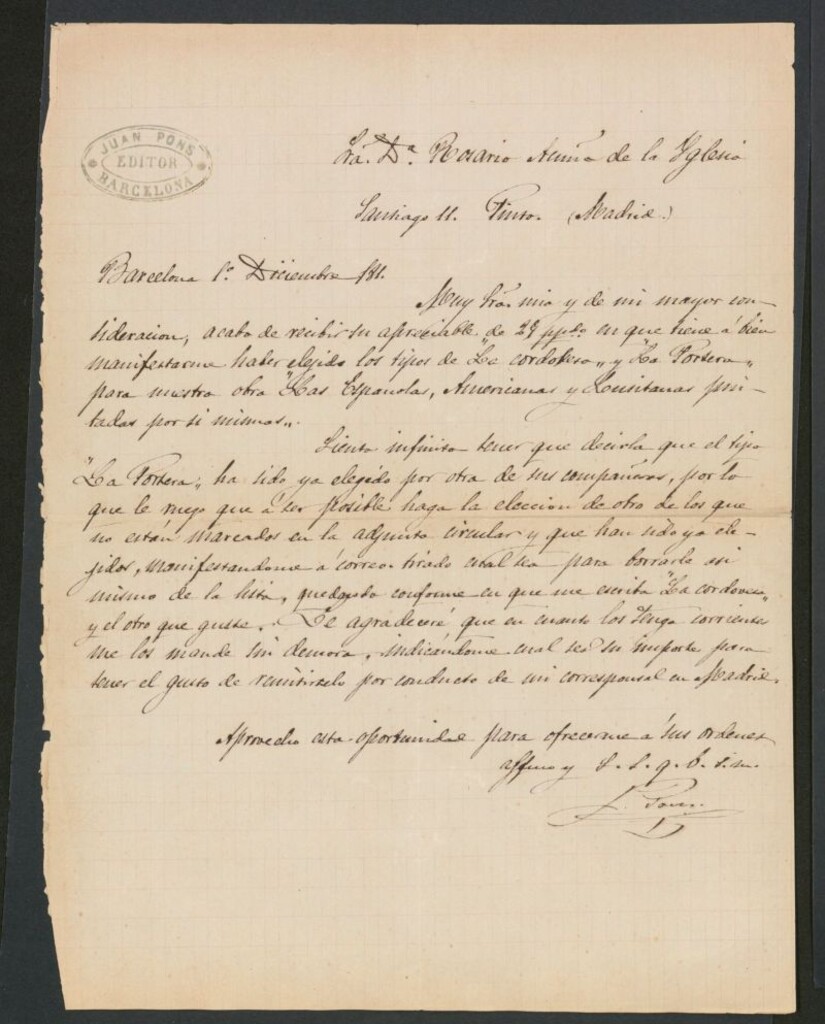 JUAN PONS
EDITOR
BARCELONA
Sra. Dª. Rosario Acuña de la Yglesia
Santiago 11. Pinto. (Madrid.)
Barcelona 1º. Diciembre /81.
Muy Sra. mia y de mi mayor con-
sideracion, acabo de recibir su apreciable de 29 ppdo en que tiene á bien
manifestarme haber elejido los tipos de "La cordobesa" y "La Portera"
para nuestra obra "Las Españolas, Americanas y Lusitanas pin-
tadas por si mismas".
Siento infinito tener que decirla que el tipo
"La Portera", ha sido ya elegido por otra de sus compañeras, por lo
que le ruego que á ser posible haga la eleccion de otro de los que
no están marcados en la adjunta circular y que han sido ya ele-
jidos, manifestandome á correo tirado cual sea para borrarle asi
mismo de la lista, quedando conforme en que me escriba "La cordovesa"
y el otro que guste. Le agradeceré que en cuanto los tenga corrientes
me los mande sin demora, indicándome cual sea su importe para
tener el gusto de remitirselo por conducto de mi corresponsal en Madrid.
Aprovecho esta oportunidad para ofrecerme á sus ordenes
affmo y S. S. q. b. s. m.
J. Pons